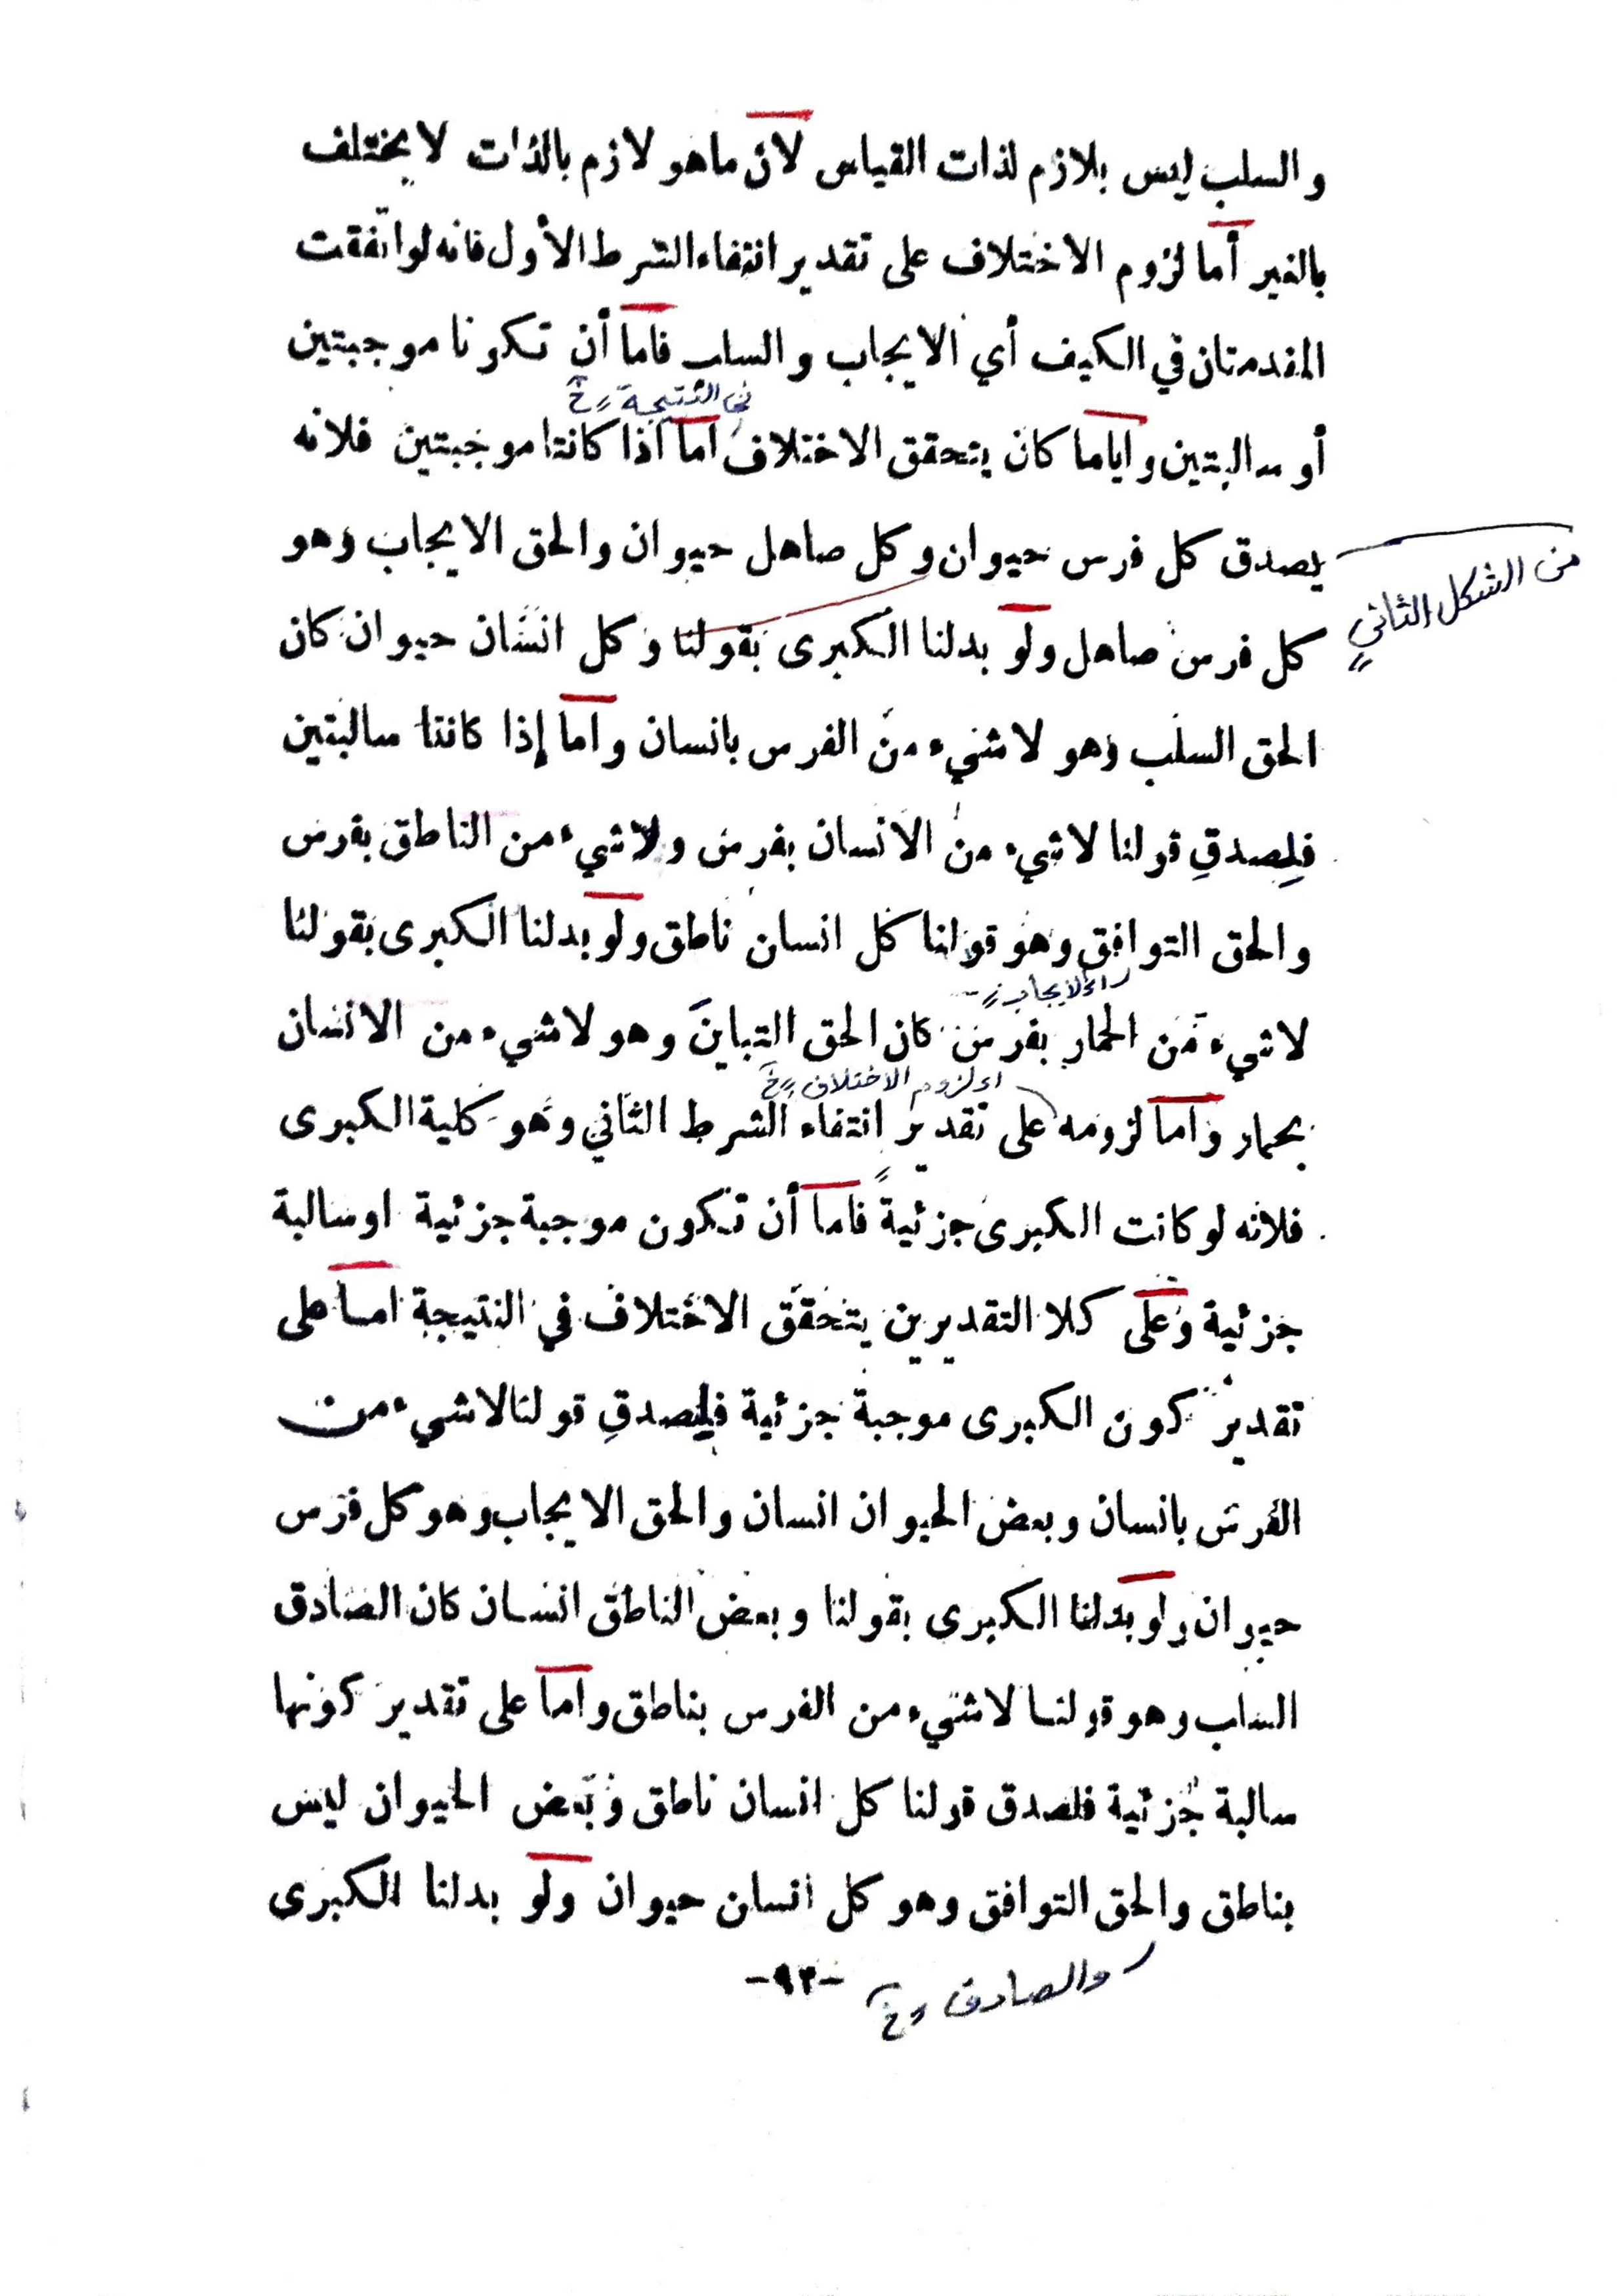 والسلب ليس بلازم لذات القياس لأن ما هو لازم بالذات لا يختلف
بالغير أما لزوم الاختلاف على تقدير انتفاء الشرط الأول فانه لو اتفقت
المقدمتان في الكيف أي الايجاب والسلب فاما أن تكونا موجبتين
في النتيجة خ
أو سالبتين واياما كان يتحقق الاختلاف اما اذا كانتا موجبتين فلانه
يصدق كل فرس حيوان وكل صاهل حيوان والحق الايجاب وهو
من الشكل الثاني
كل فرس صاهل ولو بدلنا الكبرى بقولنا وكل انسان حيوان كان
الحق السلب وهو لا شيء من الفرس بانسان واما إذا كانتا سالبتين
فلِصدقِ قولنا لا شيء من الانسان بفرس ولا شيء من الناطق بفرس
والحق التوافق وهو قولنا كل انسان ناطق ولو بدلنا الكبرى بقولنا
الايجاب
لا شيء من الحمار بفرس كان الحق التباين وهو لا شيء من الانسان
اى لزوم الاختلاف خ
بحمار واما لزومه على تقدير انتفاء الشرط الثاني وهو كلية الكبرى
فلانه لو كانت الكبرى جزئية فاما أن تكون موجبة جزئية او سالبة
جزئية وعلى كلا التقديرين يتحقق الاختلاف في النتيجة اما على
تقدير كون الكبرى موجبة جزئية فلصدقِ قولنا لا شيء من
الفرس بانسان وبعض الحيوان انسان والحق الايجاب وهو كل فرس
حيوان ولو بدلنا الكبرى بقولنا وبعض الناطق انسان كان الصادق
السلب وهو قولنا لا شيء من الفرس بناطق واما على تقدير كونها
سالبة جزئية فلصدق قولنا كل انسان ناطق وبعض الحيوان ليس
بناطق والحق التوافق وهو كل انسان حيوان ولو بدلنا الكبرى
والصادق خ
-٩٣-